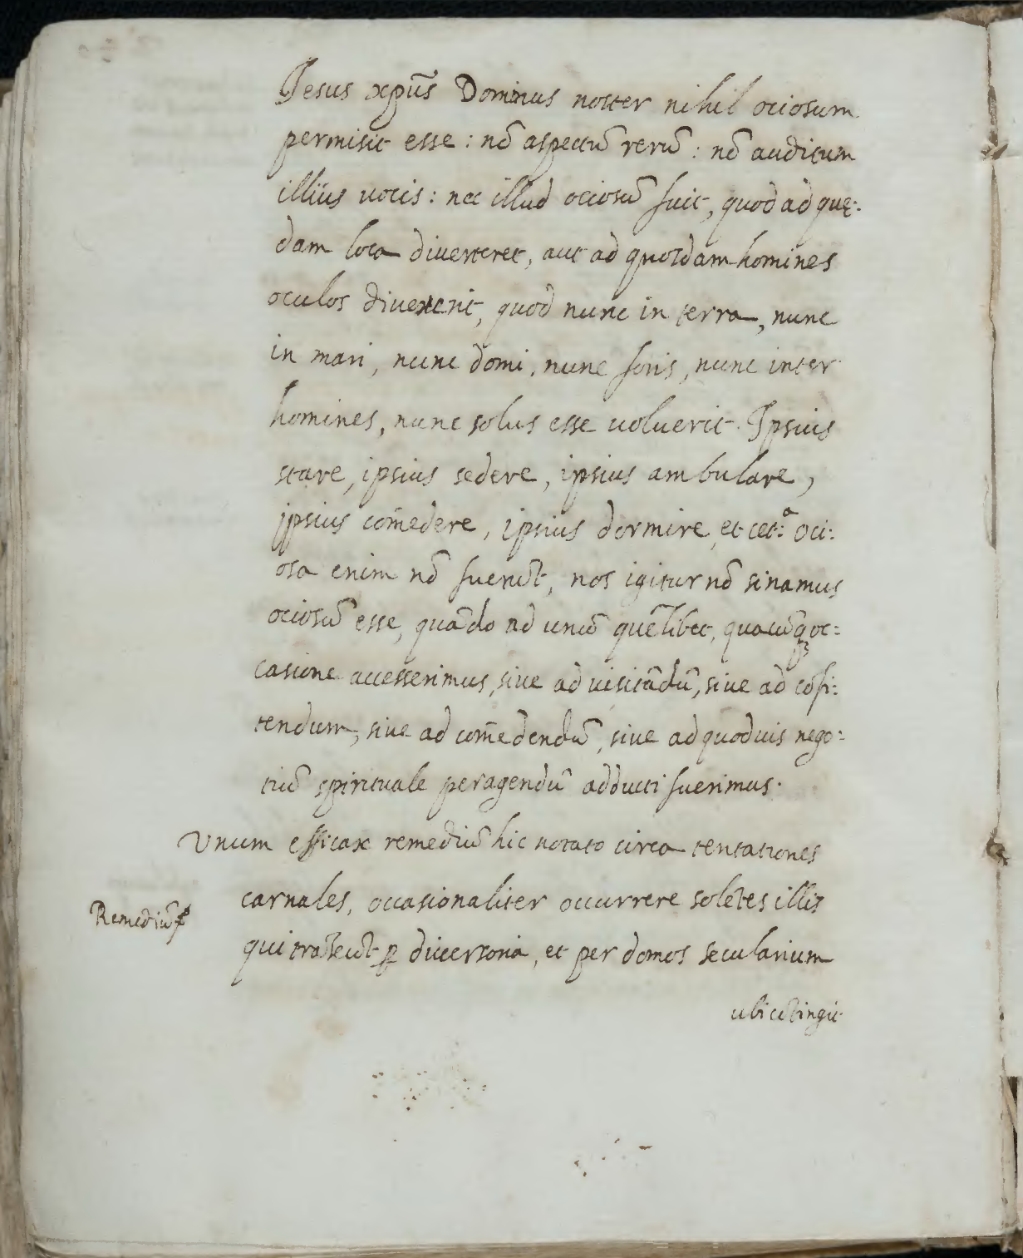 Jesus xp̄us Dominus noster nihil ociosum
permisit esse : nō aspectū rerū : nō auditum
illius uocis : nec illud ociosū fuit, quod ad quę:
dam loca diuerteret, aut ad quosdam homines
oculos diuexerit, quod nunc in terra, nunc
in mari, nunc domi, nunc foris, nunc inter
homines, nunc solus esse uoluerit. Ipsius
stare, ipsius sedere, ipsius ambulare,
jpsius com̄edere, ipsius dormire, et cet:ᵃ oci:
osa enim nō fuerūt, nos igitur nō sinamus
ociosū esse, quādo ad unū quēlibet, quacūqꝫ oc:
casione accesserimus, siue ad uisitādū, siue ad cōfi:
tendum, siue ad com̄edendū, siue ad quoduis nego:
tiū spirituale peragendū adducti fuerimus.
Vnum efficax remediū hic notato circa tentationes
carnales, occasionaliter occurrere solētes illis
Remediū
qui trāseūt ꝑ diuersoria, et per domos secularium
ubi cōtingit